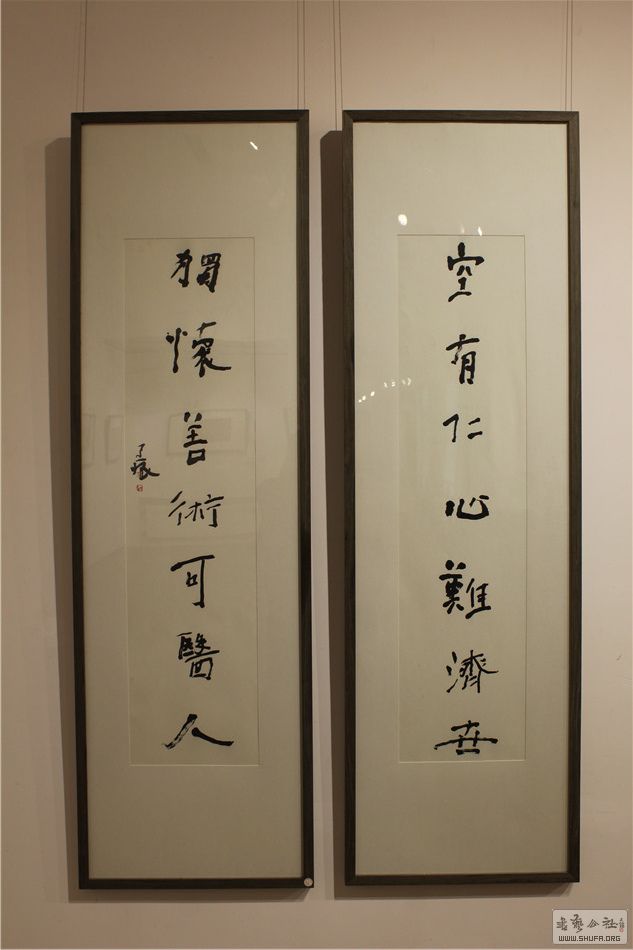 空有仁心難濟世
獨懷善術可醫人
書藝公社
WWW.SHUFA.ORG